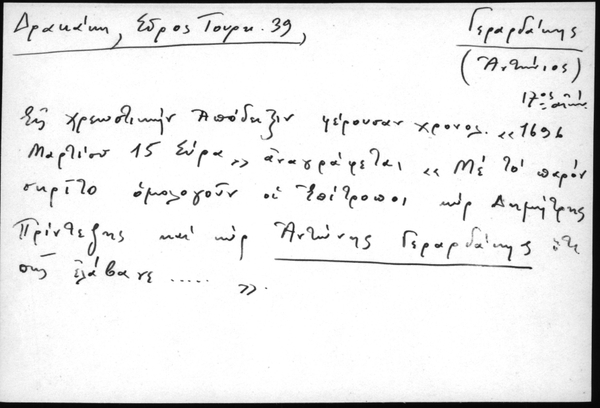 Δρακάκη, Σύρος Τουρκ. 39,
Γεραρδάκης
(Ἀντώνιος)
17ος αἰών
Εἰς χρεωστικήν Ἀπόδειξιν φέρουσαν χρονολ. «1696
Μαρτίου 15 Σύρα» ἀναγράφεται «Μέ τό παρόν
σκρίτο ὁμολογοῦν οἱ Ἐπίτροποι κύρ Δημήτρης
Πρίντεζης καί κύρ Ἀντώνης Γεραρδάκης ὅτι
πῶς ἐλάβανε ..... ».